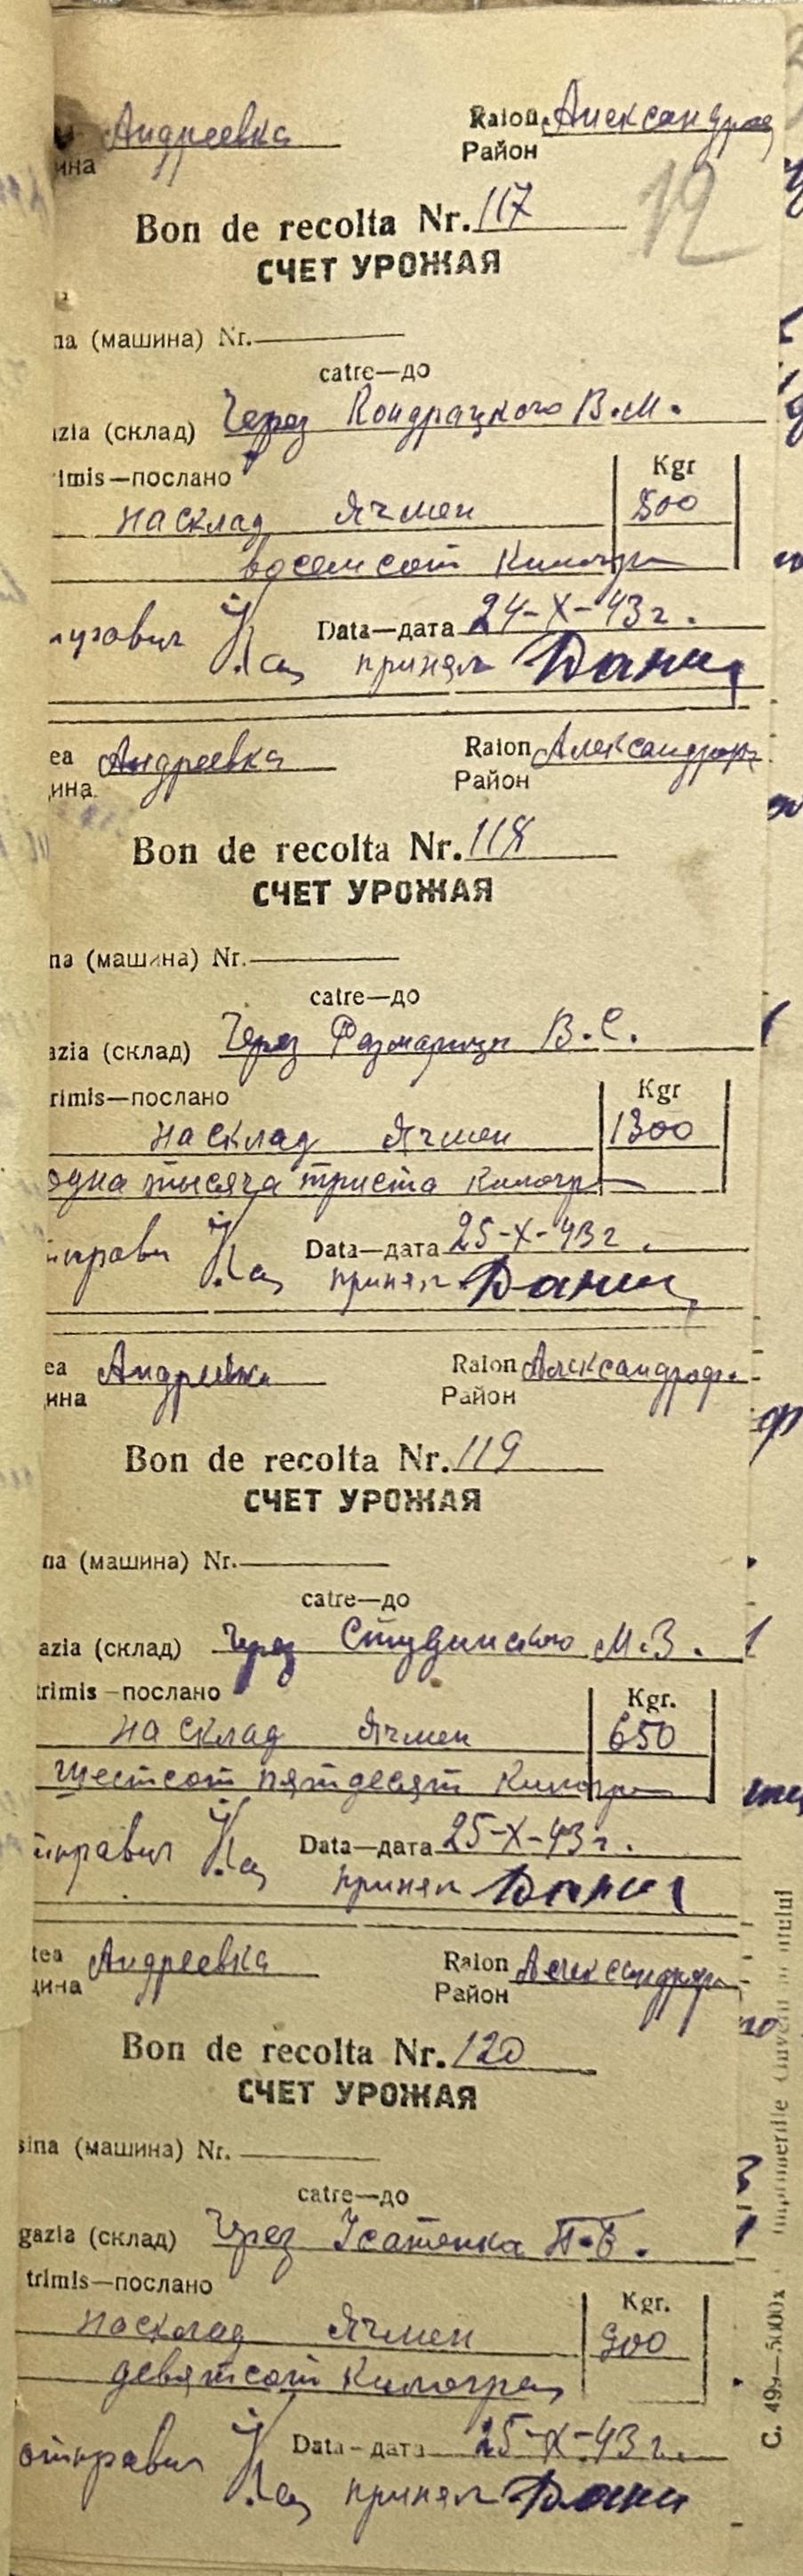 Андреевка Raion Александро
ина Район
Bon de recolta Nr. 117
12
СЧЕТ УРОЖАЯ
na (машина) Nr.
catre—до
azia (склад) Через Кондрацкого В.М.
rimis—послано Kgr
на склад Ячмен 800
восемсот Килогр
Data—дата 24-X-43 г.
принял
ea Андреевка Raion Александроф
ина Район
Bon de recolta Nr. 118
СЧЕТ УРОЖАЯ
na (машина) Nr.
catre—до
azia (склад) Через В.С.
rimis—послано Kgr
на склад Ячмен 1300
одна тысяча триста килогр
Data—дата 25-X-43 г.
принял
ea Андреевка Raion Александроф
ина Район
Bon de recolta Nr. 119
СЧЕТ УРОЖАЯ
na (машина) Nr.
catre—до
azia (склад) Через Студинского М.З.
trimis—послано Kgr.
на склад Ячмен 650
шестсот пятдесят Килогр
тправил Data—дата 25-X-43 г.
принял
tea Андреевка Raion Александроф
цина Район
Bon de recolta Nr. 120
СЧЕТ УРОЖАЯ
sina (машина) Nr.
catre—до
gazia (склад) Через Усатенка П.Е.
trimis—послано Kgr.
на склад Ячмен 900
девятсот Килограм
отправил Data—дата 25-X-43 г.
принял